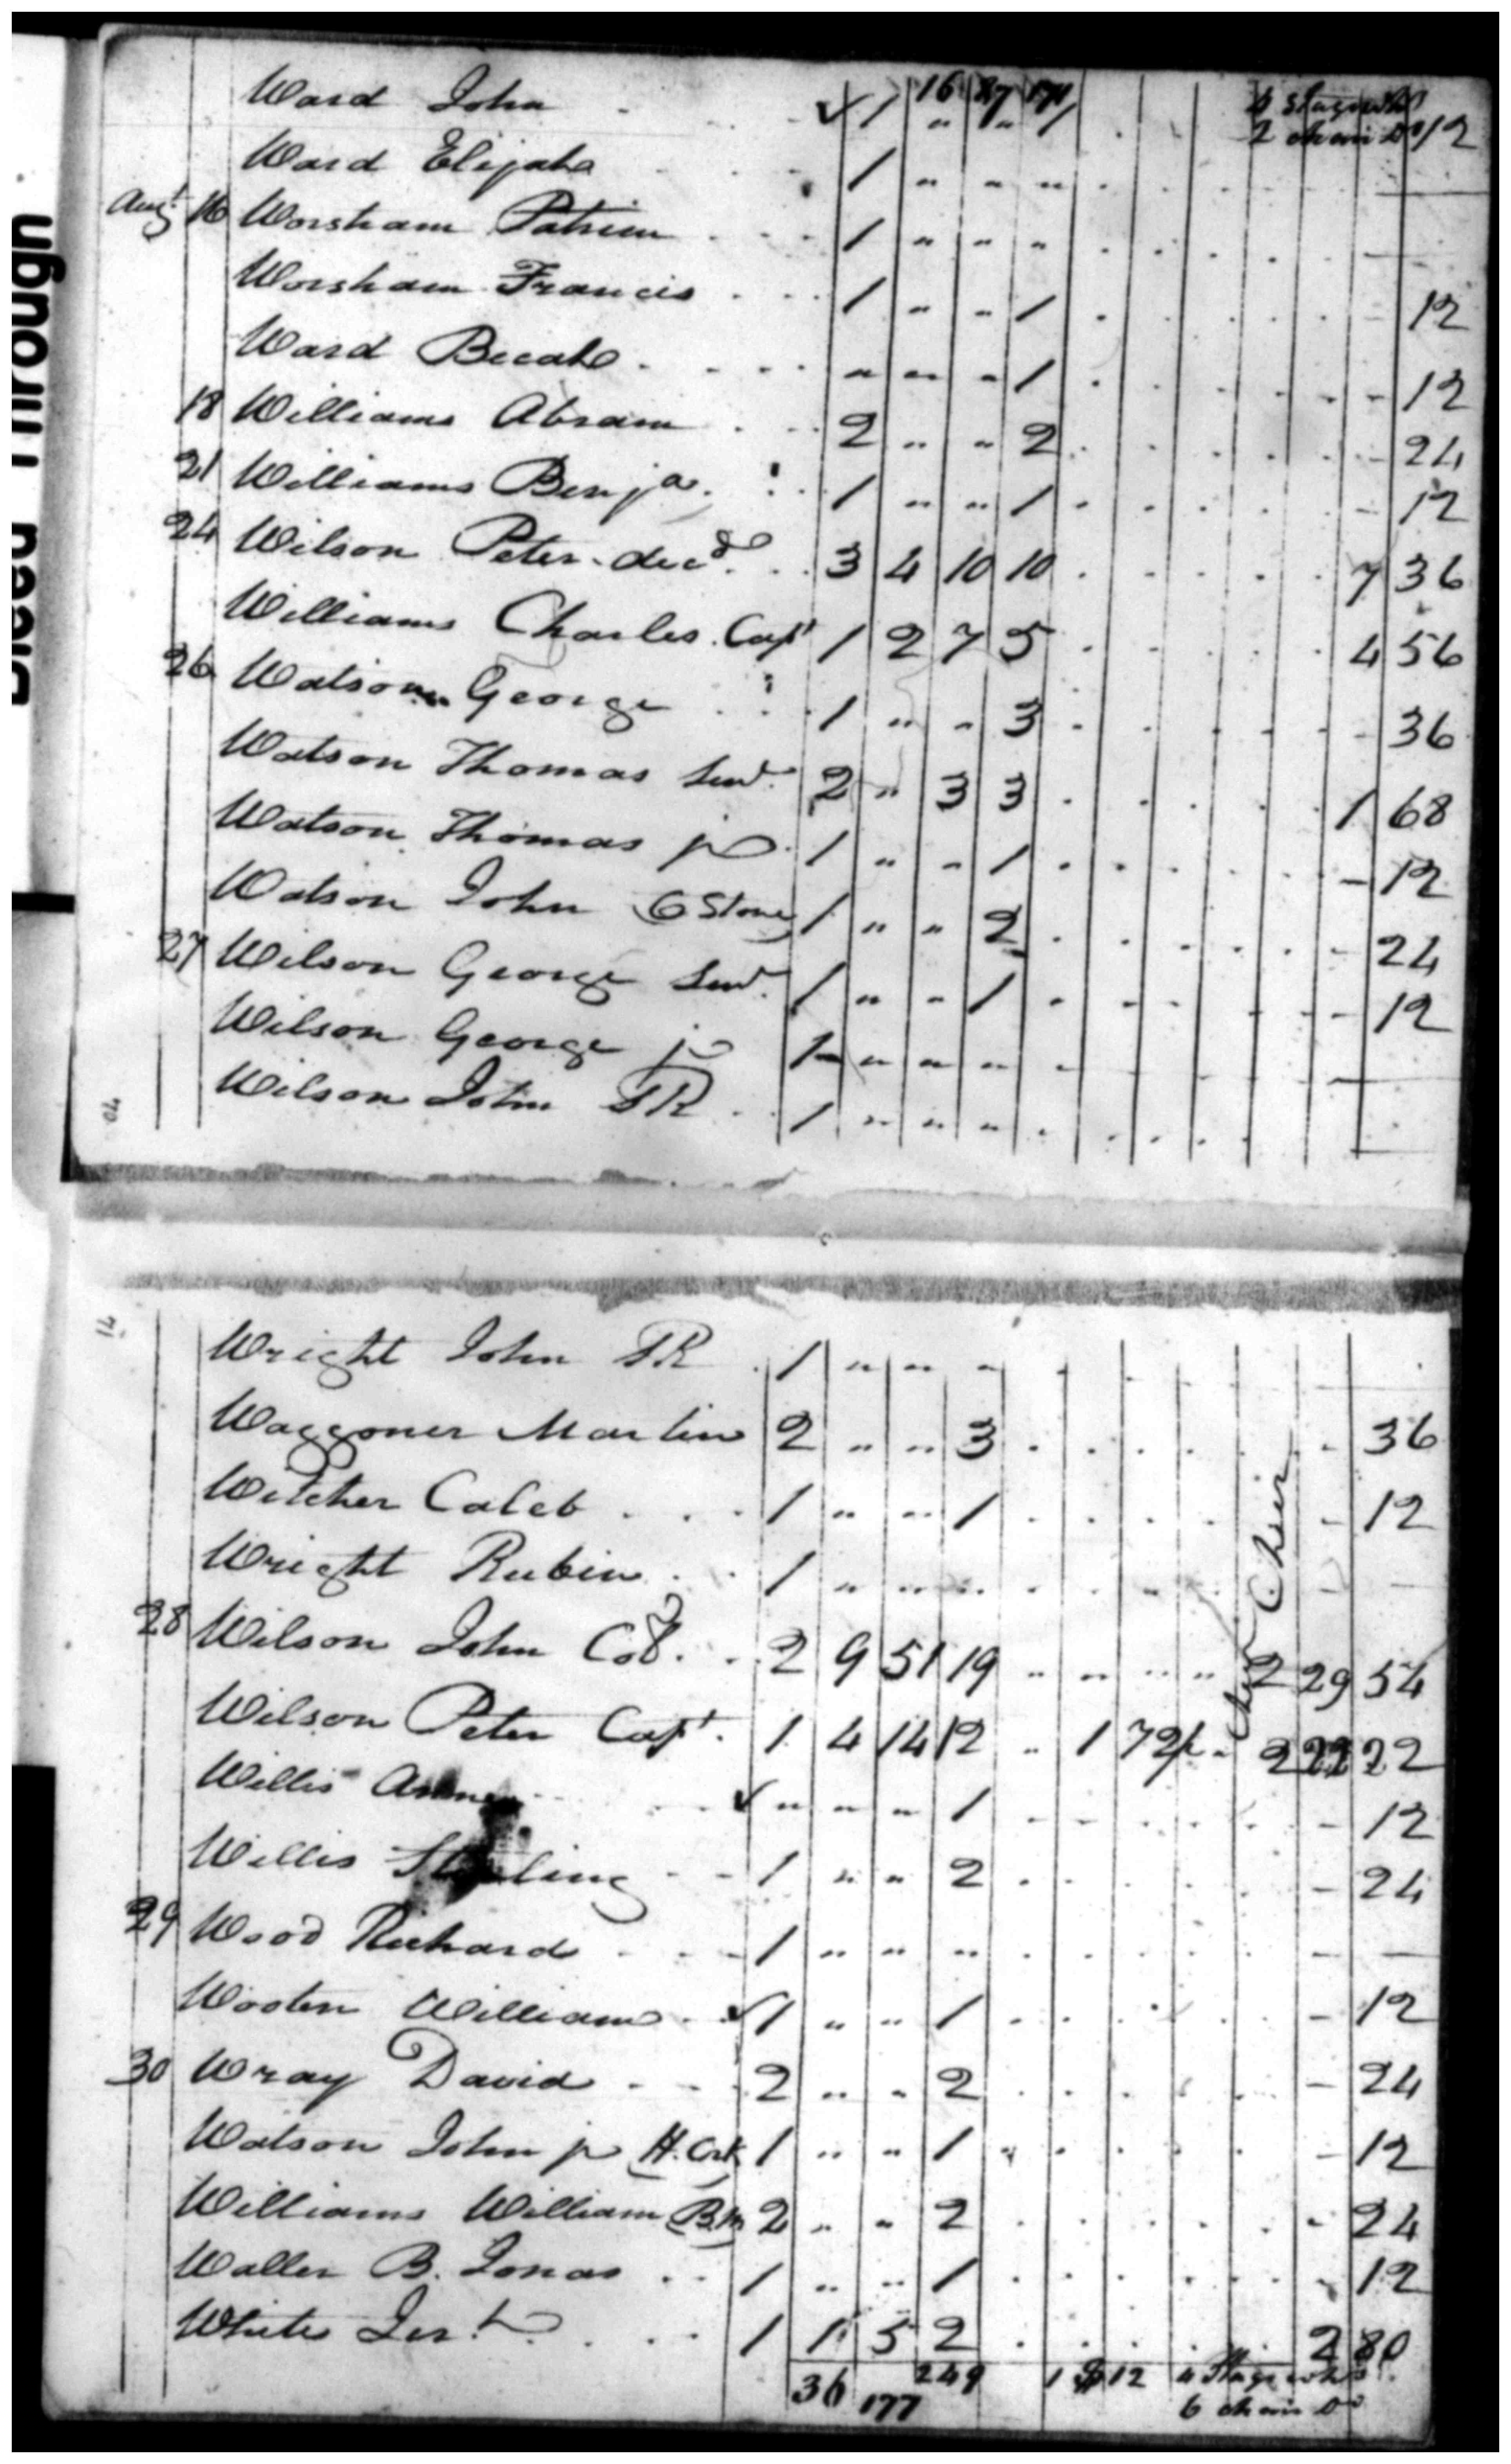 16 87 171 4 Stage wh
Ward John . . . ✓ 1 " " 1 . 2 chair Do 12
Ward Elijah . . . 1 " " " . . . . . —
Augt 16 Worsham . . . 1 " " " . . . . . —
Worsham Francis . . . 1 " " 1 . . . . . - 12
Ward Becah . . . . " " " 1 . . . . - - 12
18 Williams Abram . . . 2 " " 2 . . . . . - 24
21 Williams Benja. . . 1 " " 1 . . . . . - 12
24 Wilson Peter decd. . . 3 4 10 10 . . . . . 7 36
Williams Charles Capt 1 2 7 5 . . . . . 4 56
26 Watson George . . . 1 " " 3 . . . . . - 36
Watson Thomas Senr. 2 " 3 3 . . . . 1 68
Watson Thomas jr. 1 " " 1 . . . . . - 12
Watson John (Stone) 1 " " 2 . . . . . - 24
27 Wilson George Senr. 1 " " 1 . . . . . - 12
Wilson George jr 1 " " " . . . . . —
Wilson John SR . 1 " " " . . . . . —
Wright John SR . 1 " " " . . . . . —
Waggoner Martin 2 " " 3 . . . . . - 36
Witcher Caleb . . . 1 " " 1 . . . . . - 12
Wright Rubin . . 1 " " " . . . . . - —
28 Wilson John Col. . . 2 9 51 19 " " " " 2 29 54
Chair
Wilson Peter Capt. 1 4 14 12 " 1 72 2 22
Willis . . . ✓ " " " 1 . . . . . - 12
Willis Sterling - - 1 " " 2 . . . . . - 24
29 Wood Richard . . . 1 " " " . . . . . - —
Wooten William . ✓ 1 " " 1 . . . . . - 12
30 Wray David . . . 2 " " 2 . . . . . - 24
Watson John jr (H. Crk) 1 " " 1 . . . . . - 12
Williams William 2 " " 2 . . . . . - 24
Waller B. Jonas . . 1 " " 1 . . . . . - 12
White . . . 1 1 5 2 . . . . . 2 80
36 177 249 1 12 4 Stage wh
6 chair Do